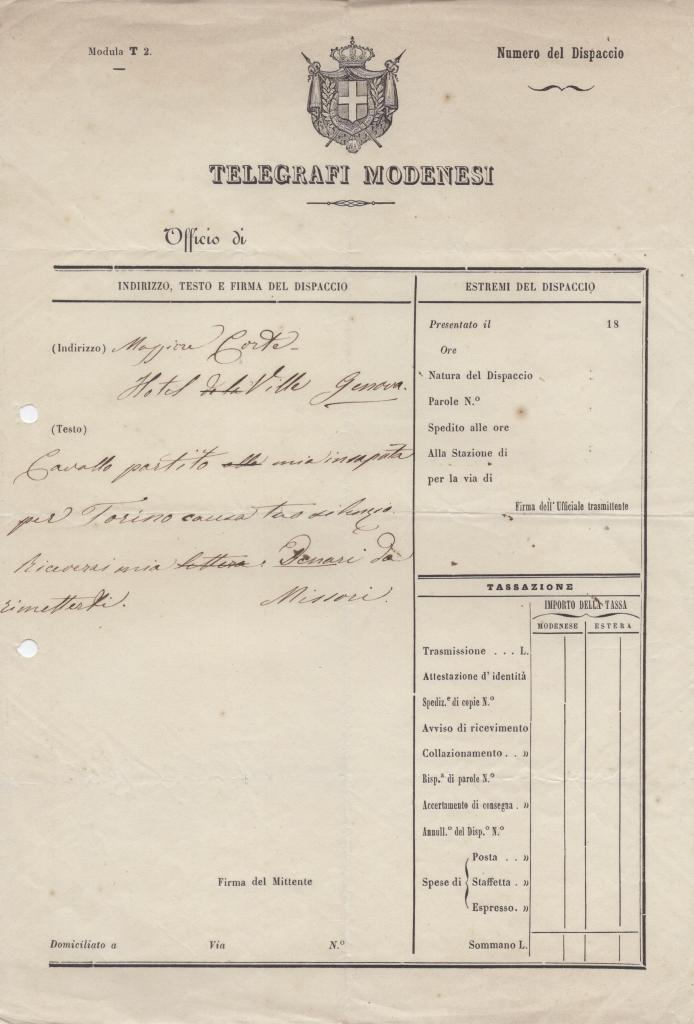 Modula T 2.
Numero del Dispaccio
TELEGRAFI MODENESI
Officio di
INDIRIZZO, TESTO E FIRMA DEL DISPACCIO
(Indirizzo) Maggiore Corte
Hotel de la Ville Genova.
(Testo)
Cavallo partito alla mia insaputa
per Torino causa tuo silenzio.
Ricevesi mia lettera e Denari da
rimetterti. Missori.
Firma del Mittente
Domiciliato a Via N.º
ESTREMI DEL DISPACCIO
Presentato il 18
Ore
Natura del Dispaccio
Parole N.º
Spedito alle ore
Alla Stazione di
per la via di
Firma dell'Ufficiale trasmittente
TASSAZIONE
IMPORTO DELLA TASSA
MODENESE ESTERA
Trasmissione . . . L.
Attestazione d'identità
Spediz.e di copie N.º
Avviso di ricevimento
Collazionamento . . »
Risp.a di parole N.º
Accertamento di consegna . »
Annull.º del Disp.º N.º
Spese di
Posta . . »
Staffetta . »
Espresso. »
Sommano L.